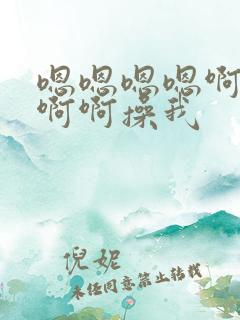 嗯嗯嗯嗯啊
啊啊操我
倪妮
未经同意禁止转载